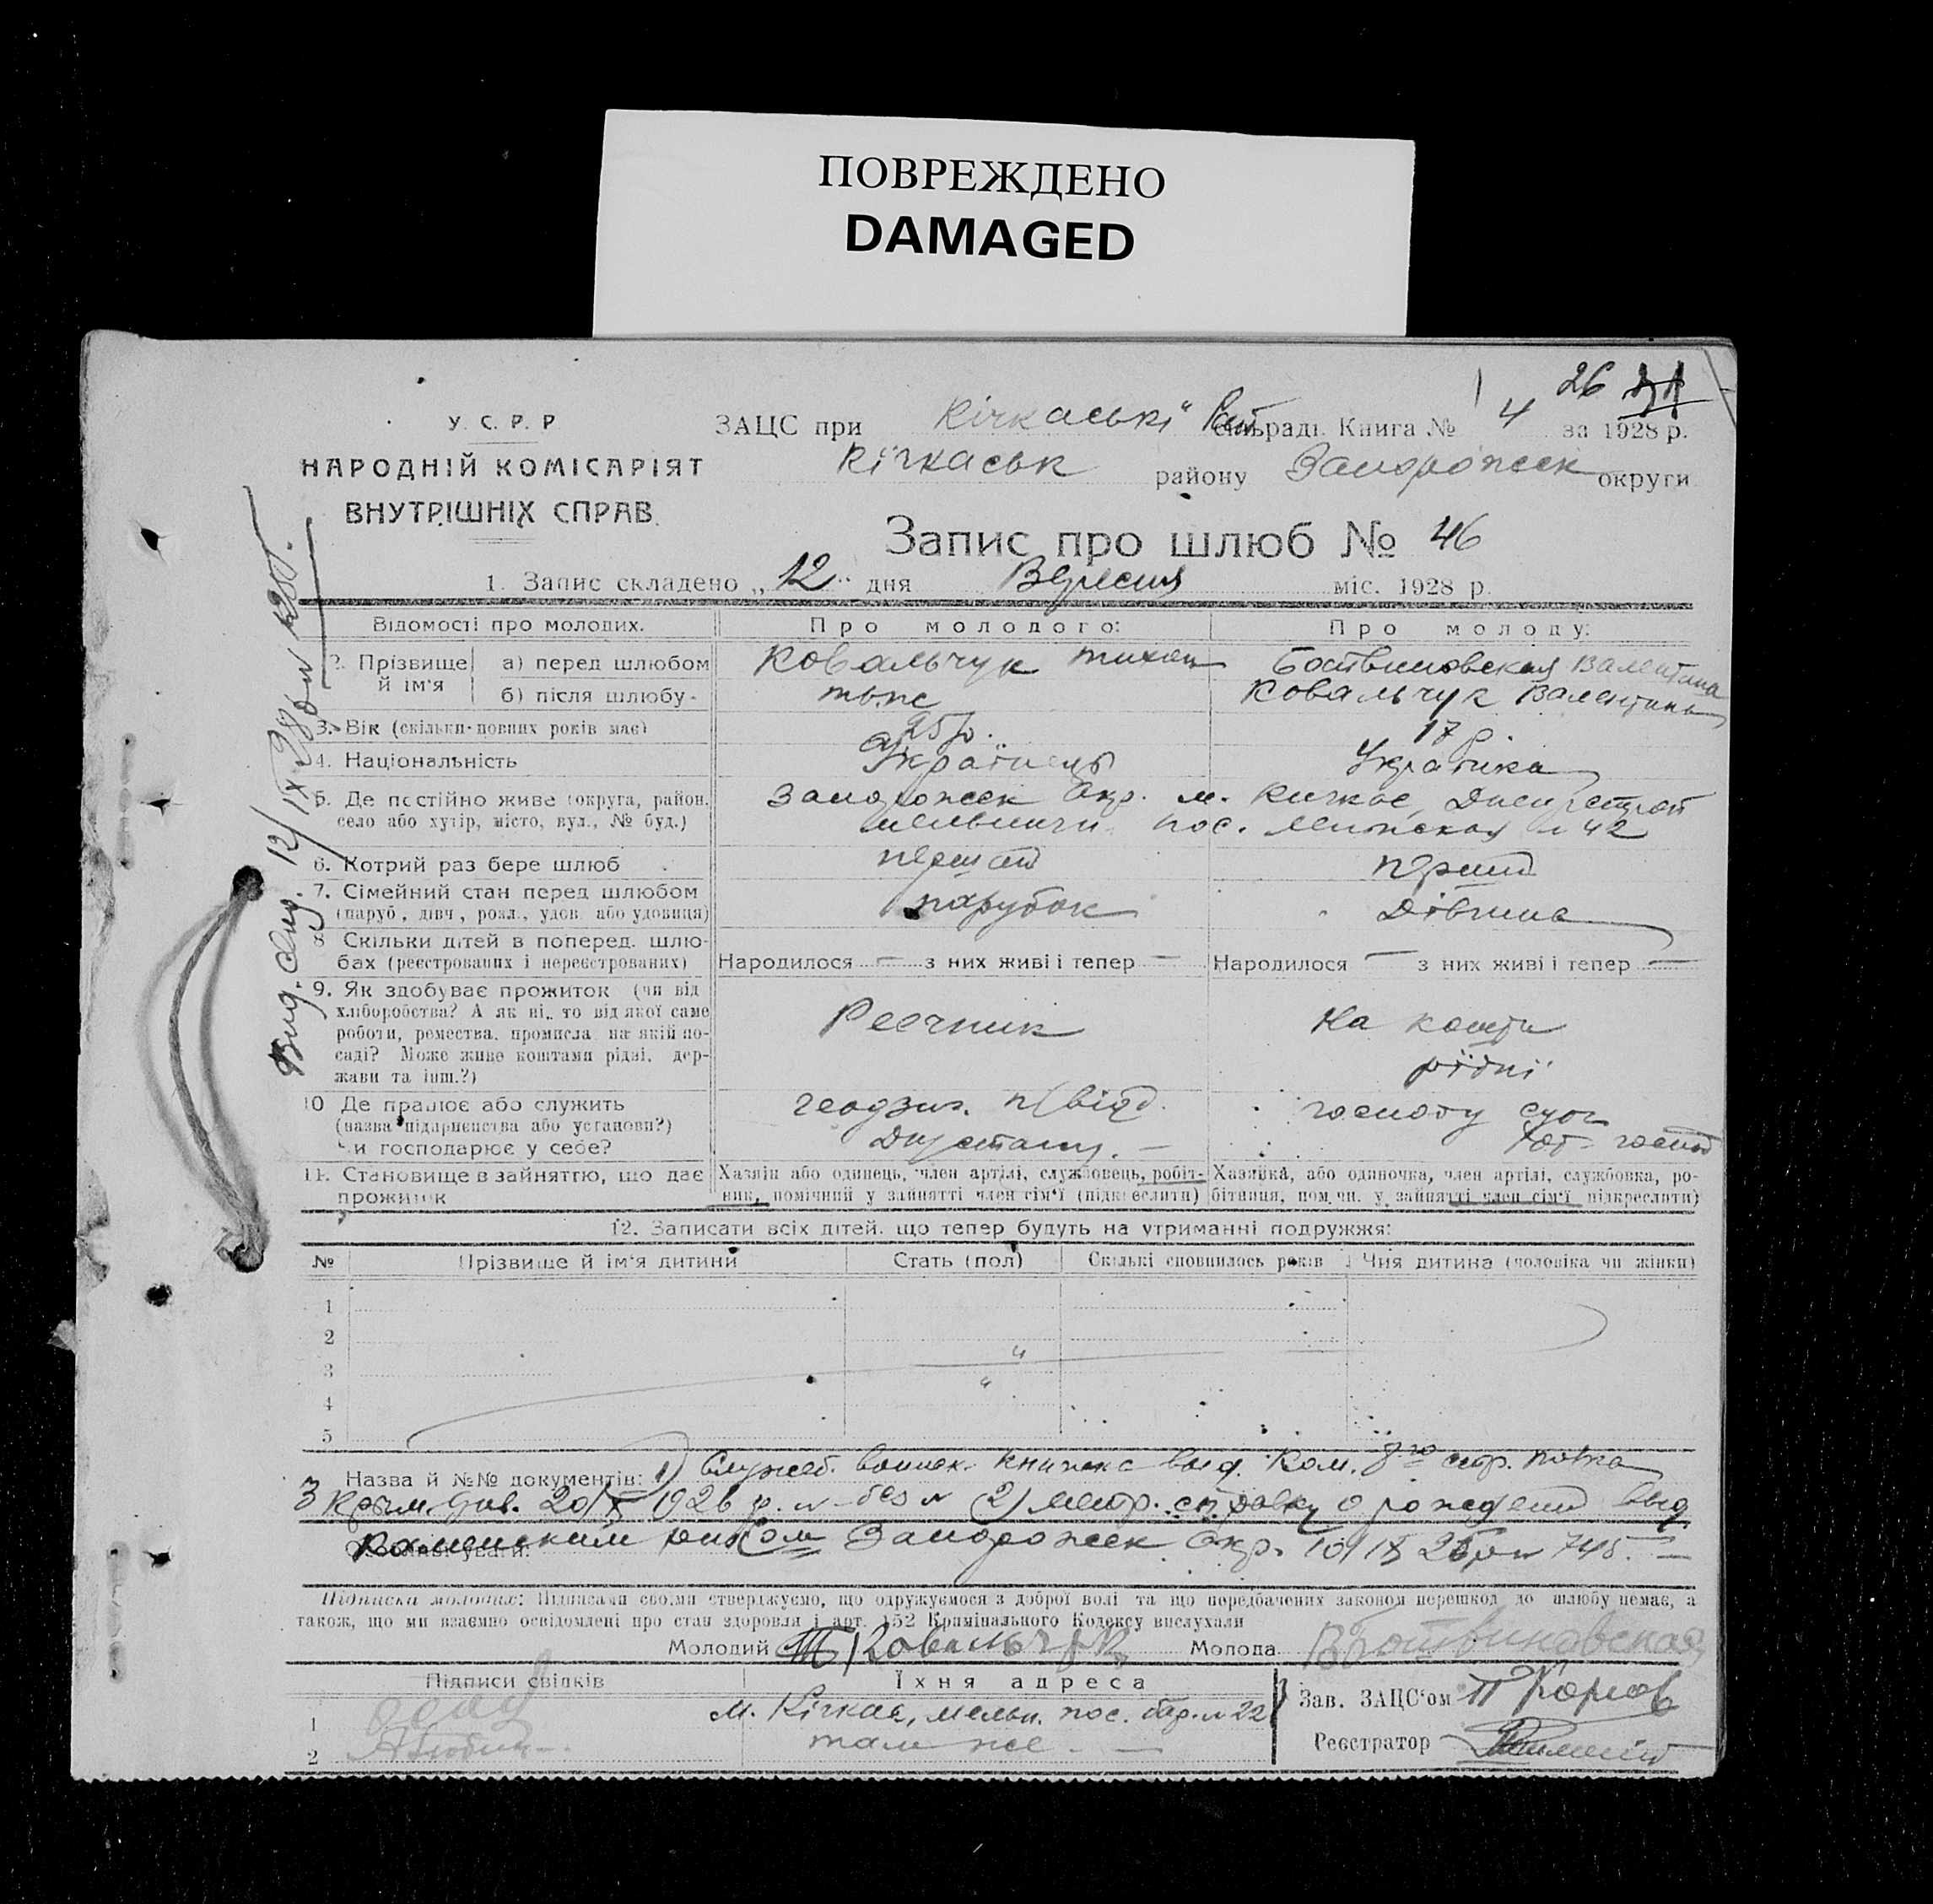 ПОВРЕЖДЕНО
DAMAGED
26
У. С. Р. Р
НАРОДНІЙ КОМІСАРІЯТ
ВНУТРІШНІХ СПРАВ.
ЗАЦС при Кічкаські сільраді. Книга № 4 за 1928 р.
Кічкаськ району Запорожск округи
Запис про шлюб № 46
1. Запис складено „12" дня Вересня міс. 1928 р.
Відомості про молодих.
Про молодого:
Про молоду:
2. Прізвище й ім'я
а) перед шлюбом
Ковальчук Тихон
Ботвиновская Валентина
б) після шлюбу
тоже
Ковальчук Валентина
3. Вік (скільки повних років має)
25 р.
17 р.
4. Національність
Українець
Українка
5. Де постійно живе (округа, район, село або хутір, місто, вул., № буд.)
Запорожск Окр. м. Кичкас, Днепрострой
пос. 42
6. Котрий раз бере шлюб
перший
7. Сімейний стан перед шлюбом (паруб., дівч., розл., удов. або удовиця)
парубок
Дівчина
8. Скільки дітей в поперед. шлюбах (реєстрованих і нереєстрованих)
Народилося — з них живі і тепер —
Народилося — з них живі і тепер —
9. Як здобуває прожиток (чи від
хліборобства? А як ні, то від якої саме
роботи, ремества, промисла на якій по-
саді? Може живе коштами рідні, дер-
жави та інш.?)
Реечник
На кошти
рідні
10. Де працює або служить
(назва підприємства або установи?)
чи господарює у себе?
11. Становище в зайняттю, що дає
прожиток
Хазяїн або одинець, член артілі, службовець, робіт-
ник, помічний у зайнятті член сім'ї (підкреслити)
Хазяйка, або одиночка, член артілі, службовка, ро-
бітниця, помічн. у зайнятті член сім'ї підкреслити)
12. Записати всіх дітей, що тепер будуть на утриманні подружжя:
№
Прізвище й ім'я дитини
Стать (пол)
Скількі сповнилось років
Чия дитина (чоловіка чи жінки)
1
2
3
4
5
Назва й №№ документів: 1) книжка выд. Ком. 8го полка
3 Крым. див. 20/X 1926 р. 2) справку о рождении выд
Каменским Запорожск Окр. 745. —
Підписка молодих: Підписами своїми стверджуємо, що одружуємося з доброї волі та що передбачених законом перешкод до шлюбу немає, а
також, що ми взаємно освідомлені про стан здоровля і арт. 152 Крімінального Кодексу вислухали
Молодий Т Ковальчук Молода В Ботвиновская
Підписи свідків
Їхня адреса
1
м. Кічкас, мельн. пос. бар. № 22
2
там же —
Зав. ЗАЦС'ом
Реєстратор